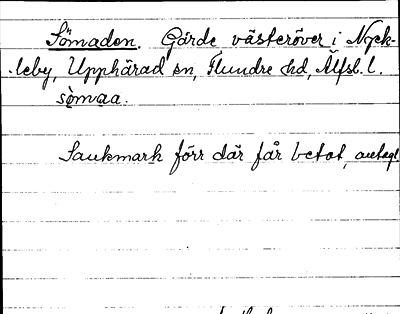 Sömaden. Gärde västeröver i Nyck-
leby, Upphärad sn, Flundre hd, Älfsb. l.
sòmαa.
Sankmark förr där får betat, antagl.